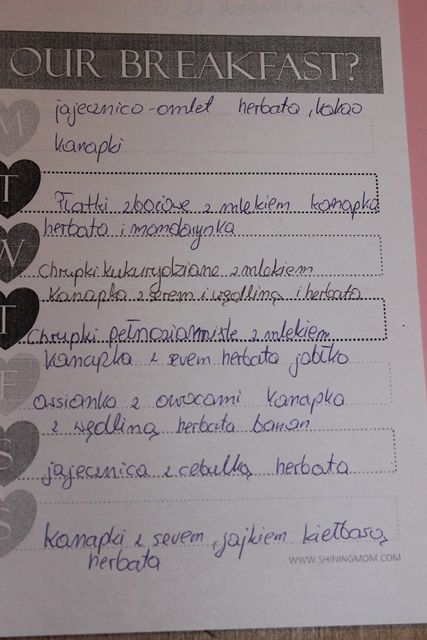 OUR BREAKFAST?
M
jajecznico-omlet herbata, kakao
kanapki
T
Płatki zbożowe z mlekiem kanapka
herbata i mandarynka
W
Chrupki kukurydziane z mlekiem
kanapka z serem i wędliną i herbata
T
Chrupki pełnoziarniste z mlekiem
kanapka z serem herbata jabłko
F
owsianka z owocami kanapka
z wędliną herbata banan
S
jajecznica z cebulką herbata
S
kanapki z serem, jajkiem kiełbasą
herbata
WWW.SHININGMOM.COM